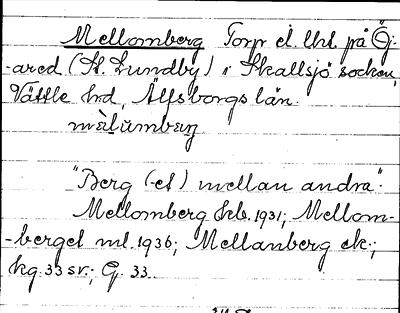 Mellomberg Torp å Uht. på Ög-
-ared (St. Lundby) i Skallsjö socken,
Vättle hd, Älfsborgs län.
mèlùmbæŋ
"Berg (-et) mellan andra".
Mellomberg hrb. 1931; Mellom-
-berget ml. 1936; Mellanberg ek.;
kg. 33 sv.; G. 33.